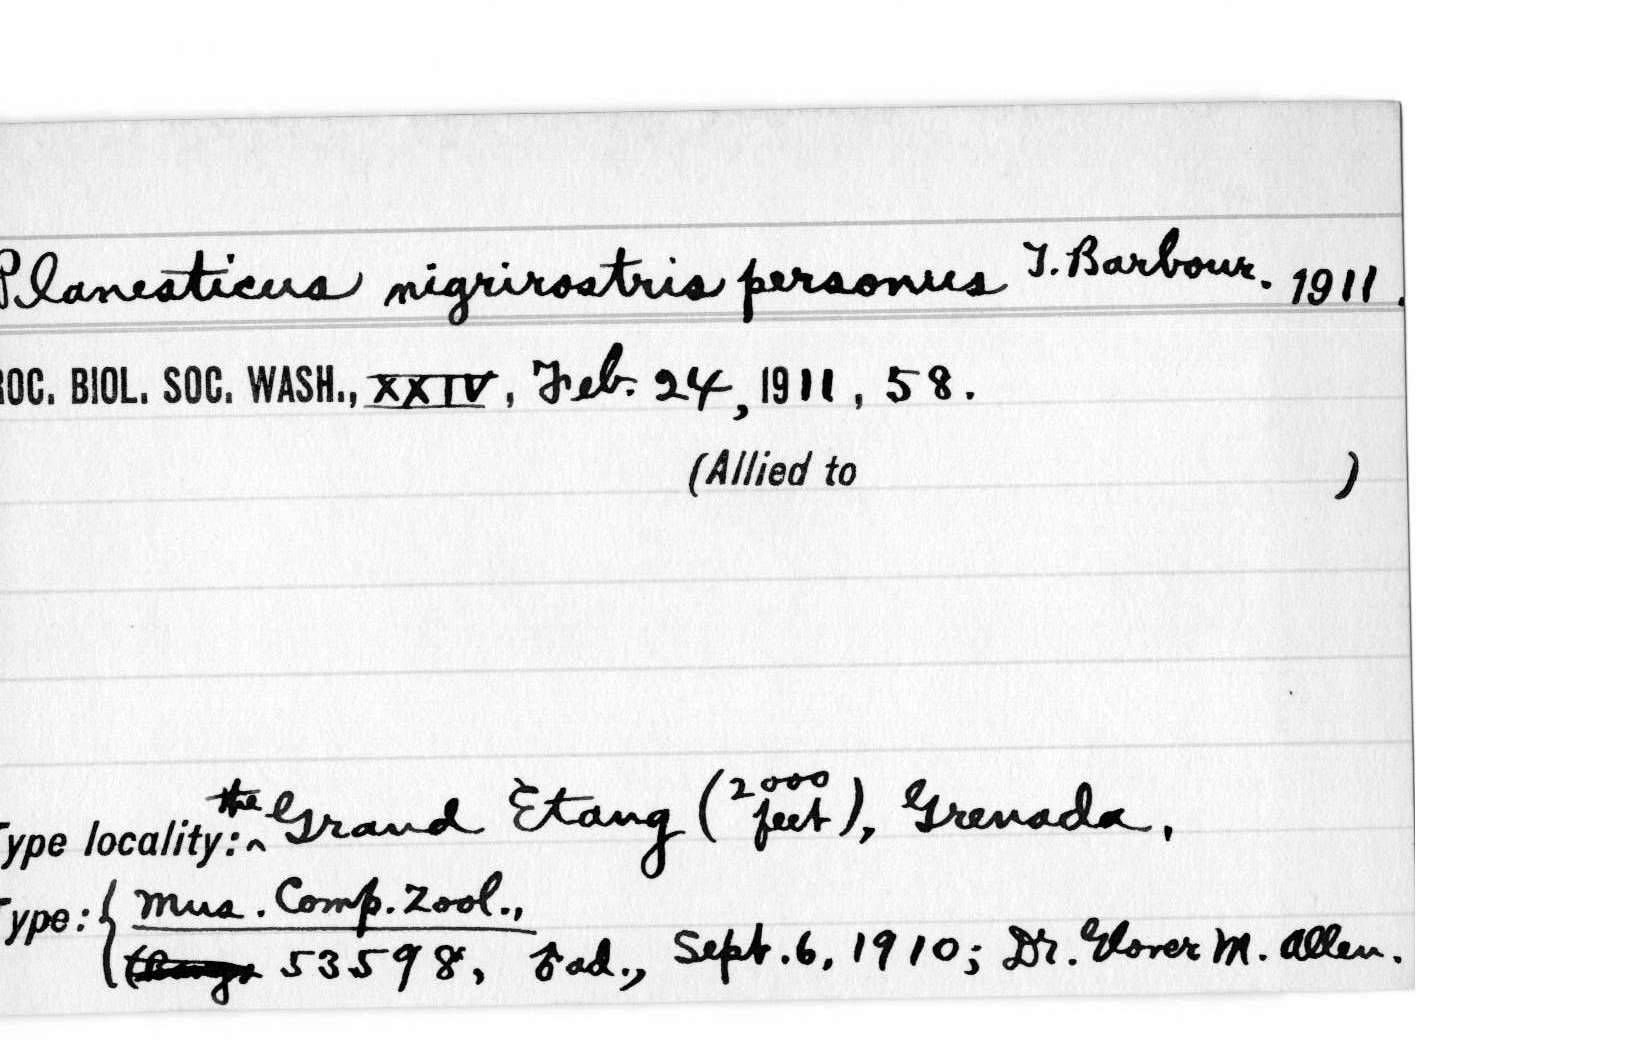 Planesticus nigrirostris personus T. Barbour. 1911.
ROC. BIOL. SOC. WASH., XXIV, Feb. 24, 1911, 58.
(Allied to )
Type locality: ^the Grand Etang (2000 feet), Grenada,
Type: { Mus. Comp. Zool.,
53598, ad., Sept. 6, 1910; Dr. Glover M. Allen.